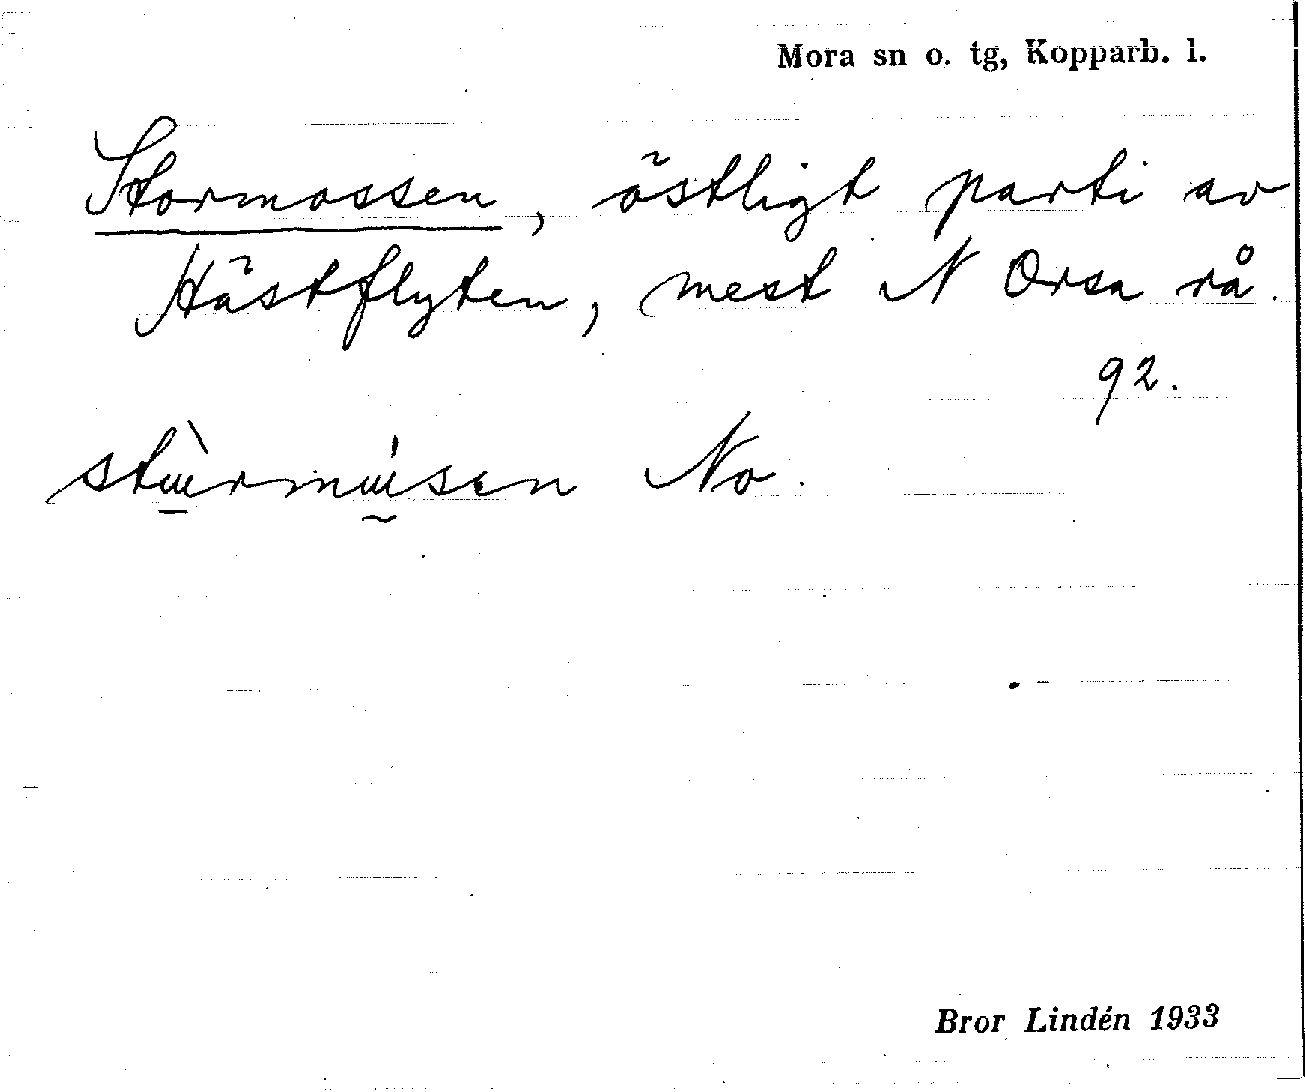 Mora sn o. tg, Kopparb. l.
Stormossen, östligt parti av
Hästflyten, mest N Orsa rå.
92.
stɯ̱̀rmɯ̰́sen No.
Bror Lindén 1933